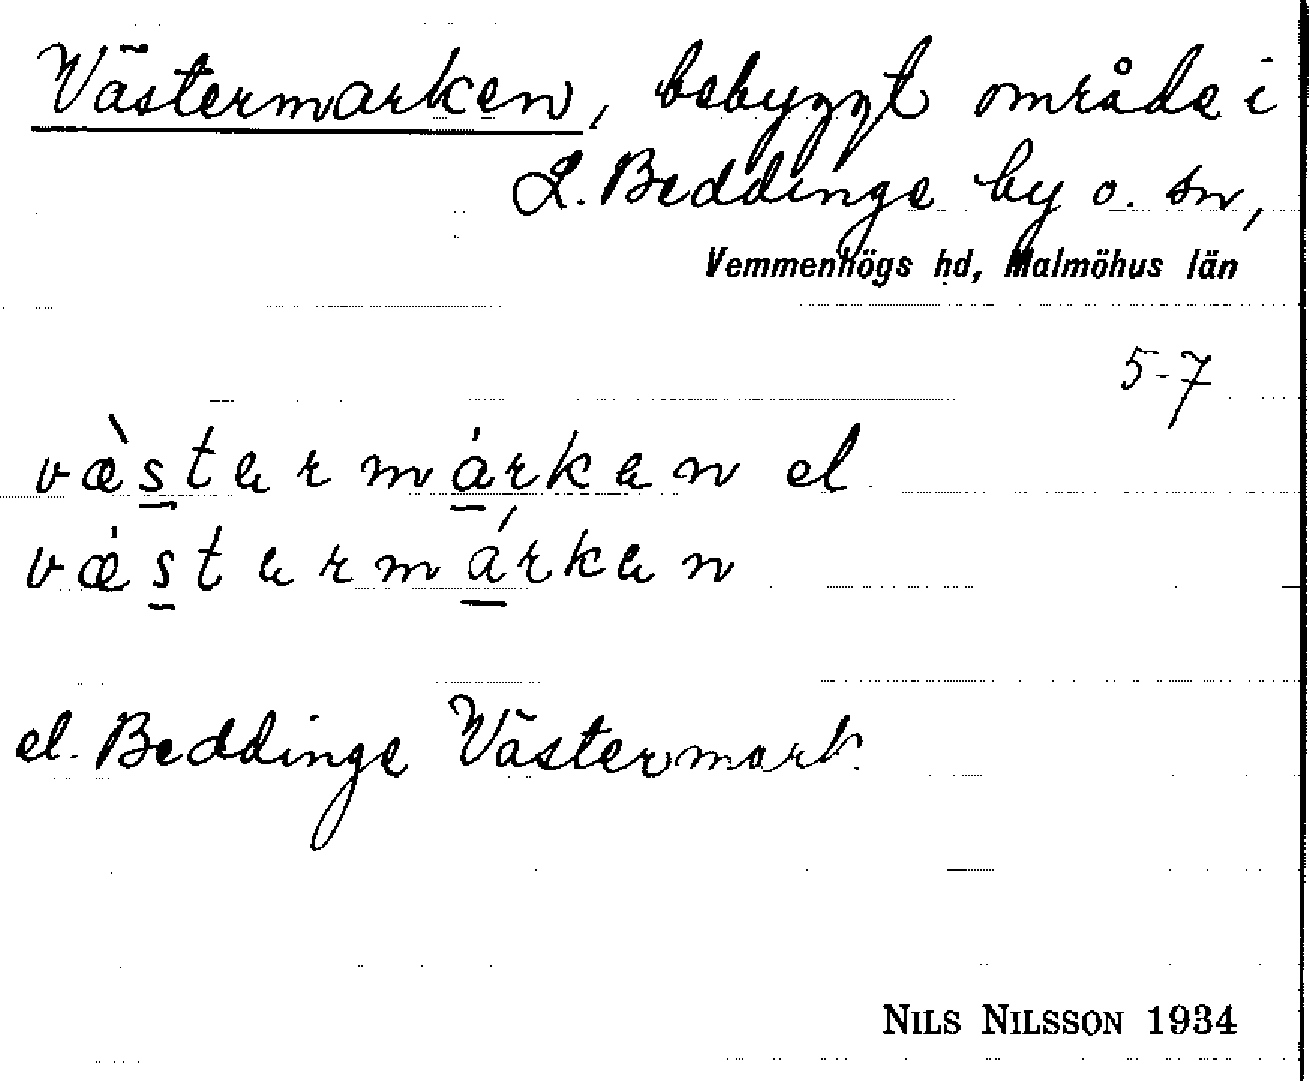 Västermarken, bebyggt område i
L. Beddinge by o. sn,
Vemmenhögs hd, Malmöhus län
5-7
væ̀stərmȧrkən el
væ̇stərmárkən
el. Beddinge Västermark.
NILS NILSSON 1934